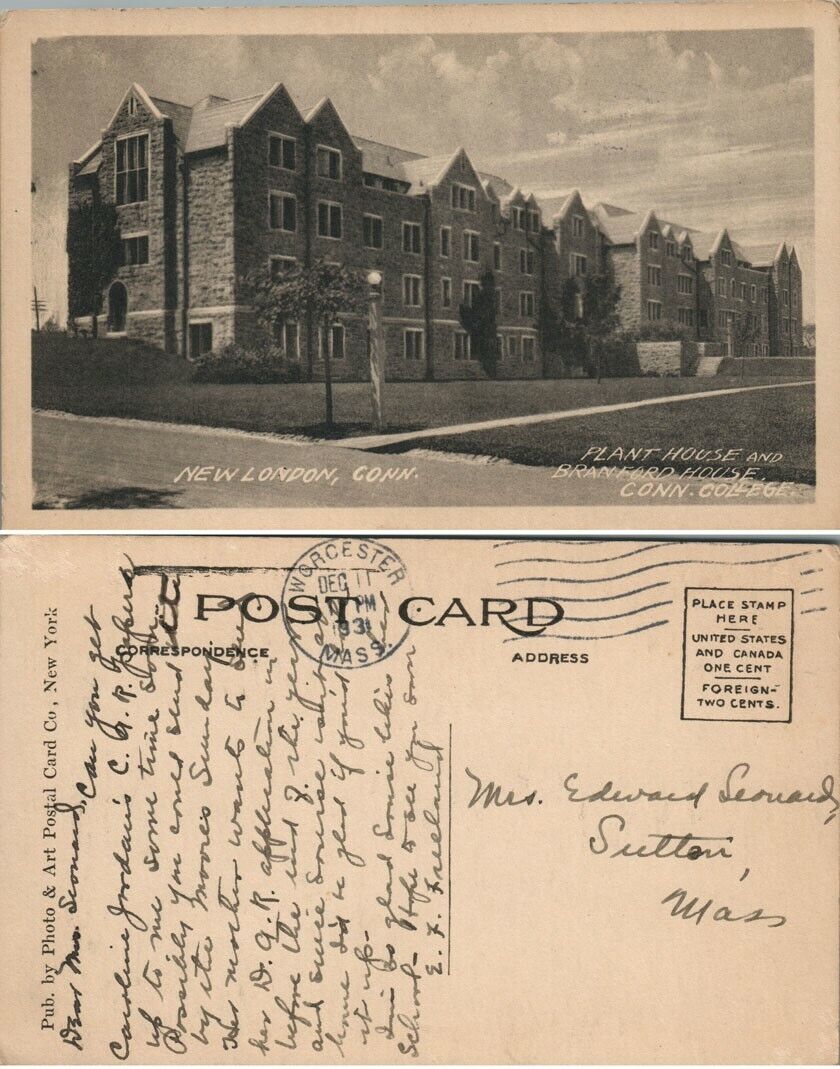 NEW LONDON, CONN.
PLANT HOUSE AND
BRANFORD HOUSE.
CONN. COLLEGE.
POST CARD
CORRESPONDENCE
ADDRESS
WORCESTER
DEC 11
PM
1931
MASS.
PLACE STAMP
HERE
UNITED STATES
AND CANADA
ONE CENT
FOREIGN-
TWO CENTS.
Pub. by Photo & Art Postal Card Co., New York
Dear Mrs. Leonard, can you get
Caroline Jordan's C. A. R. papers
up to me some time soon.
Possibly you could send it
by the Moores Sunday.
Her mother wants to
her D. A. R. application in
before the end of the year
and since Louise isn't at
home I'd be glad if you'd
it up-
I'm so glad Louise likes her
School- Hope to see you soon
E. F. Freeland
Mrs. Edward Leonard,
Sutton,
Mass